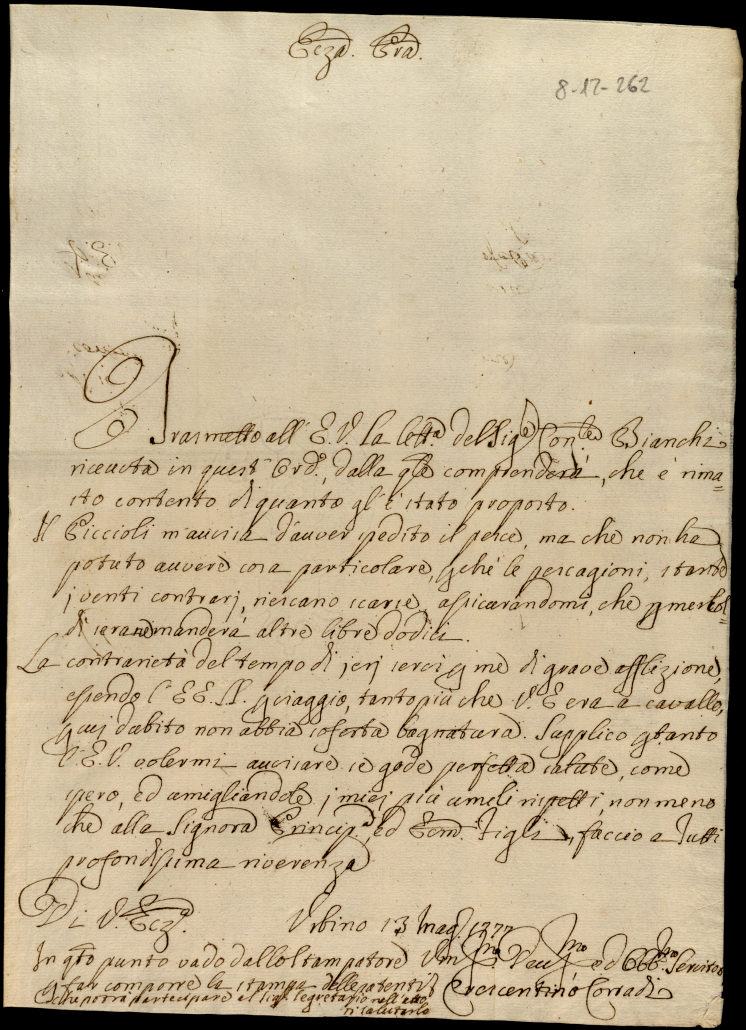 Ecza. Pra.
8-12-262
Trasmetto all' E.V. la lett.a del Sig.e Con.te Bianchi
riceuuta in quest' Ord.o, dalla q.le comprenderà, che è rima=
sto contento di quanto gl' è stato proposto.
Il Piccioli m'auuisa d'auuer spedito il pesce, ma che non ha
potuto auuere cosa particolare, p.chè le pescagioni, stante
i uenti contrarj, riescano scarse, assicurandomi, che p. mercol=
dì sera ne manderà altre libre dodici.
La contrarietà del tempo di jerj seruì p. me di graue afflizione,
essendo l' E E. p. uiaggio, tanto più che V. E era a cauallo,
p. cui dubito non abbia soferta bagnatura. Supplico p.tanto
l' E. V. volermi auuisare se gode perfetta salute, come
spero, ed umigliandole i miei più umili rispetti, non meno
che alla Signora Princip.a, ed Ecm. Figli, faccio a Tutti
profondissima riuerenza
Di V. Ecz.a
Vrbino 13 Mag.o 1777
In q.to punto uado dallo Stampatore
Vm.mo Deu.mo ed Obb.mo Seruitore
p. far comporre la stampa delle patenti
Crescentino Corradi
che potrà partecipare al Sig. Segretario nell'atto
risalutarlo